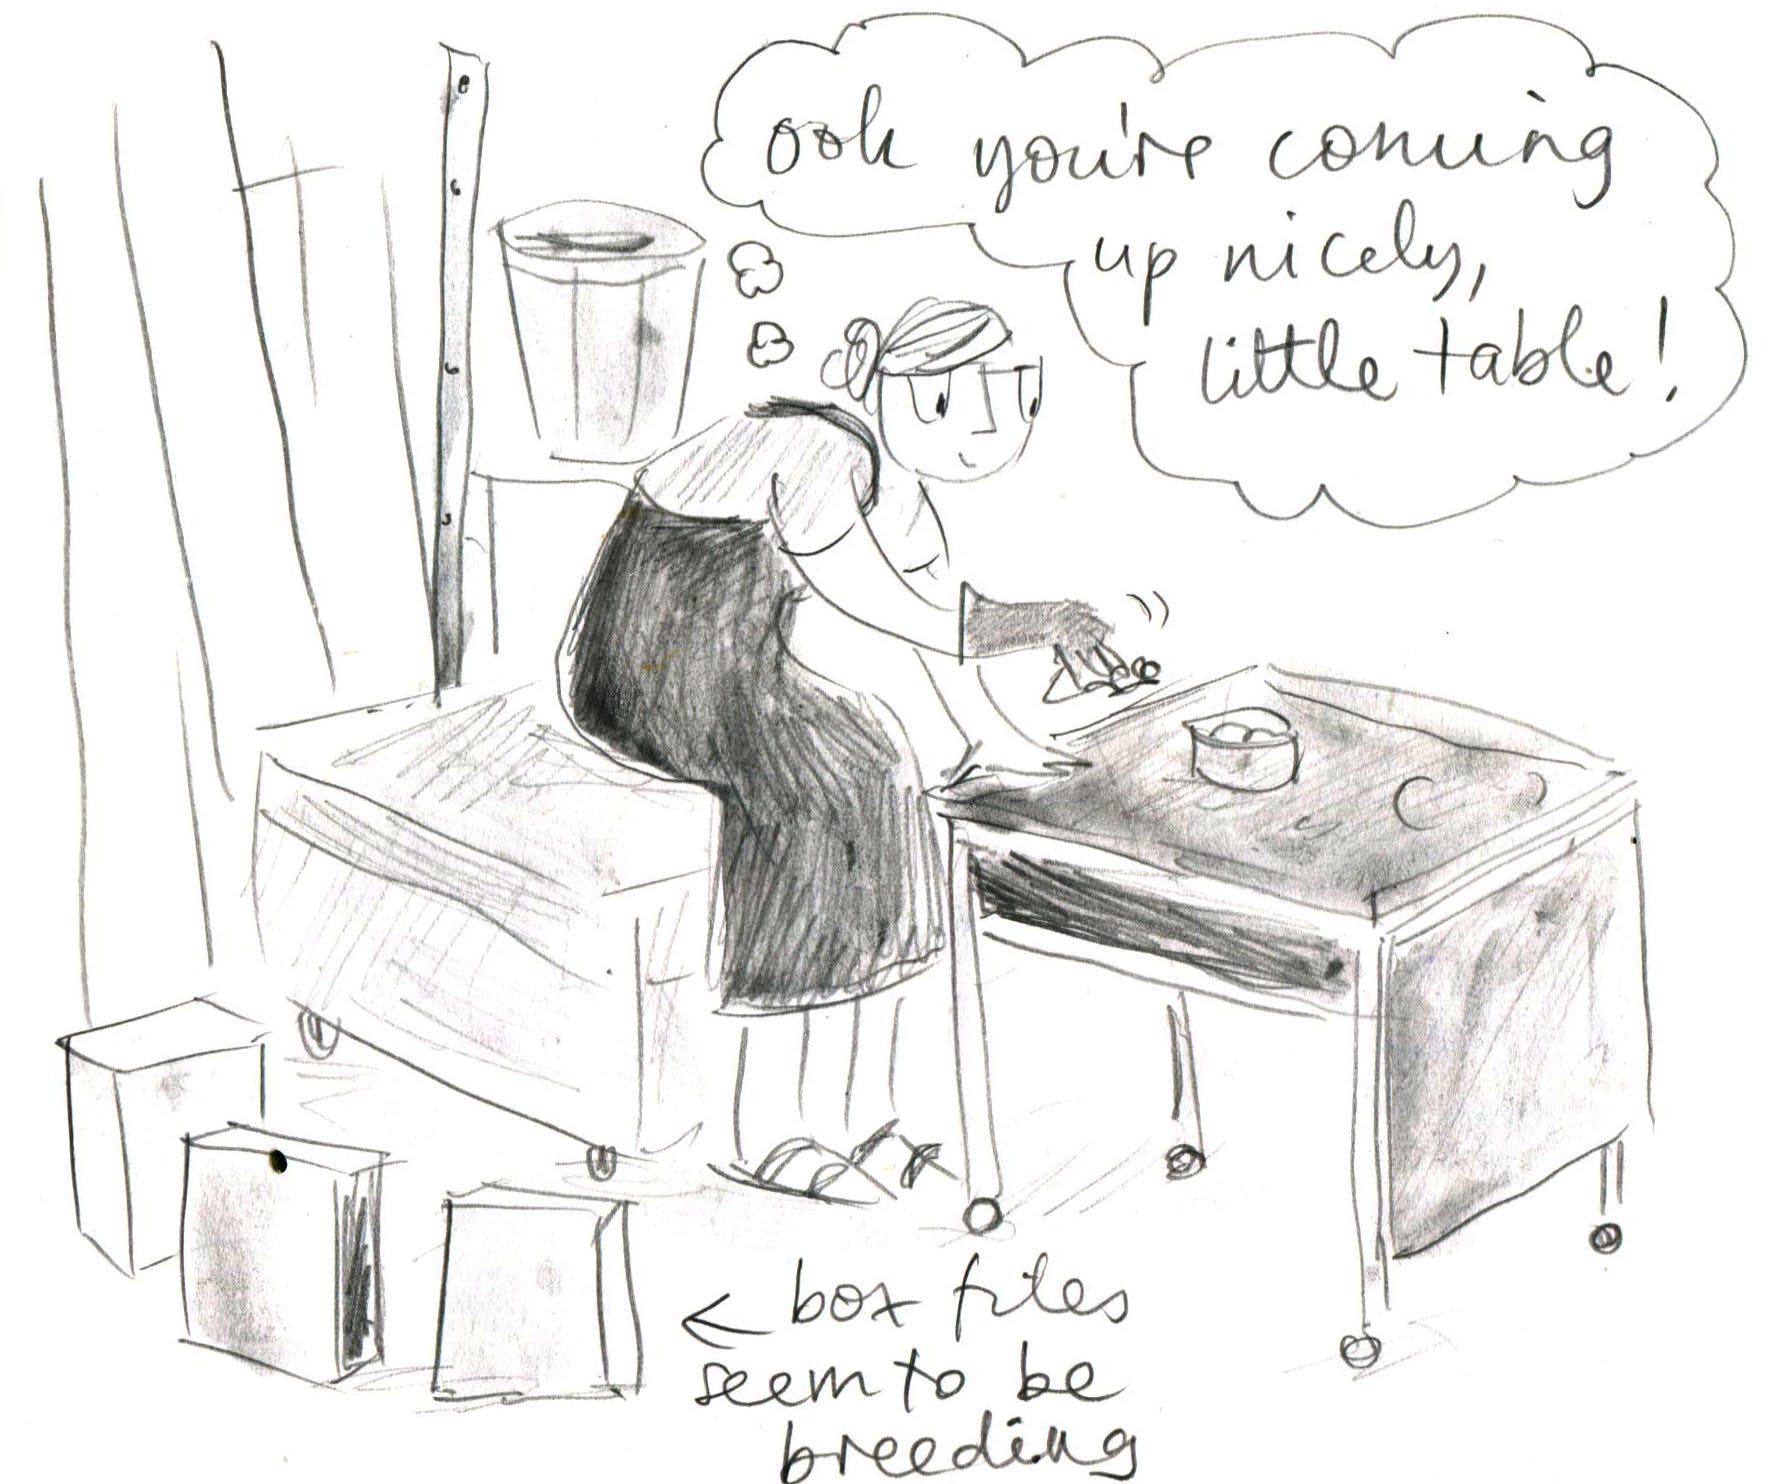 ooh you're coming
up nicely,
little table!
← box files
seem to be
breeding